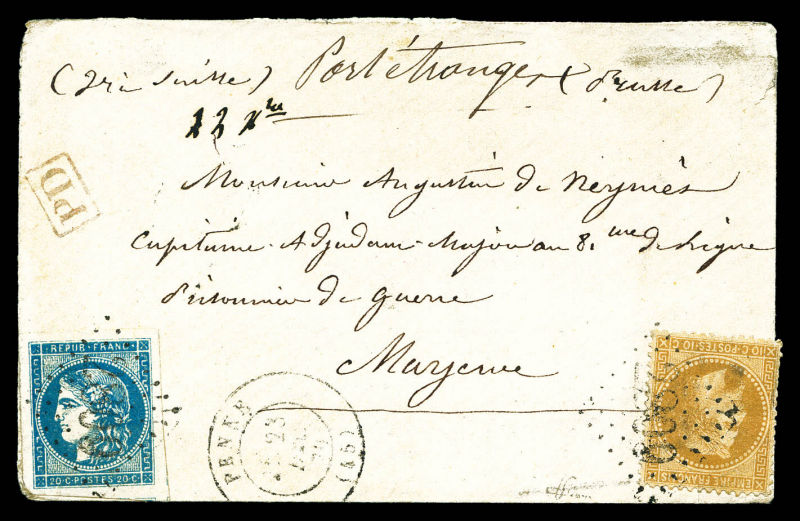 (via Suisse) Port étranger (Prusse)
PD
Monsieur Augustin de Neyriès
Capitaine Adjudant-Major au 8.me de Ligne
Prisonnier de guerre
Mayence
REPUB. FRANC.
20·C·POSTES·20·C·
PENNE
23
(45)
10 C·POSTES·10 C
EMPIRE FRANC